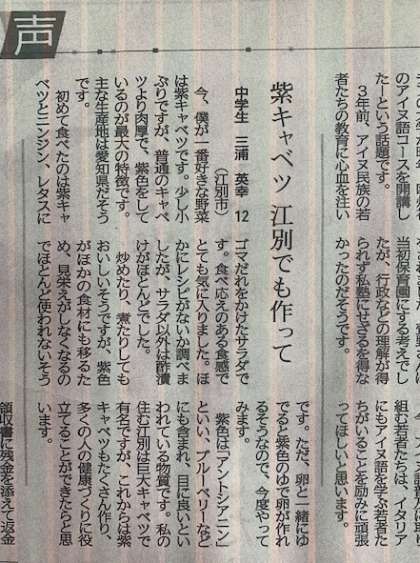 声
のアイヌ語コースを開講し
たーという話題です。
３年前、アイヌ民族の若
者たちの教育に心血を注い
当初保育園にする考えでし
たが、行政などの理解が得
られず私塾にせざるを得な
かったのだそうです。
組む若者たちは、イタリア
にもアイヌ語を学ぶ若者た
ちがいることを励みに頑張
ってほしいと思います。
紫キャベツ 江別でも作って
中学生 三浦 英幸 12
（江別市）
今、僕が一番好きな野菜
は紫キャベツです。少し小
ぶりですが、普通のキャベ
ツより肉厚で、紫色をして
いるのが最大の特徴です。
主な生産地は愛知県だそう
です。
初めて食べたのは紫キャ
ベツとニンジン、レタスに
ゴマだれをかけたサラダで
す。食べ応えのある食感で
とても気に入りました。ほ
かにレシピがないか調べま
したが、サラダ以外は酢漬
けがほとんどでした。
炒めたり、煮たりしても
おいしいそうですが、紫色
がほかの食材にも移るた
め、見栄えがしなくなるの
でほとんど使われないそう
です。ただ、卵と一緒にゆ
でると紫色のゆで卵が作れ
るそうなので、今度やって
みます。
紫色は「アントシアニン」
といい、ブルーベリーなど
にも含まれ、目に良いとい
われている物質です。私の
住む江別は巨大キャベツで
有名ですが、これからは紫
キャベツもたくさん作り、
多くの人の健康づくりに役
立てることができたらと思
います。
領収書に残金を添えて返金